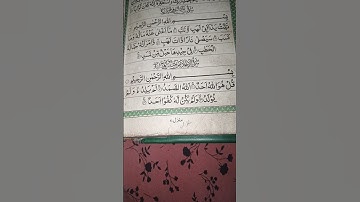 بِسْمِ اللهِ الرَّحْمٰنِ الرَّحِيْمِ
تَبَّتْ يَدَا اَبِيْ لَهَبٍ وَّتَبَّ مَا اَغْنٰى عَنْهُ مَالُهٗ وَمَا
كَسَبَ سَيَصْلٰى نَارًا ذَاتَ لَهَبٍ وَّامْرَاَتُهٗ حَمَّالَةَ
الْحَطَبِ فِيْ جِيْدِهَا حَبْلٌ مِّنْ مَّسَدٍ
بِسْمِ اللهِ الرَّحْمٰنِ الرَّحِيْمِ
قُلْ هُوَ اللهُ اَحَدٌ اَللهُ الصَّمَدُ لَمْ يَلِدْ وَلَمْ
يُوْلَدْ وَلَمْ يَكُنْ لَّهٗ كُفُوًا اَحَدٌ